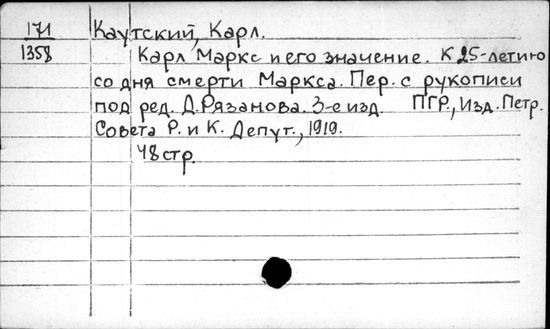 171 Каутский, Карл.
1358 Карл Маркс и его значение. К 25-летию
со дня смерти Маркса. Пер. с рукописи
под ред. Д. Рязанова. 3-е изд. ПГР., Изд. Петр.
Совета Р. и К. Депут., 1919.
48 стр.